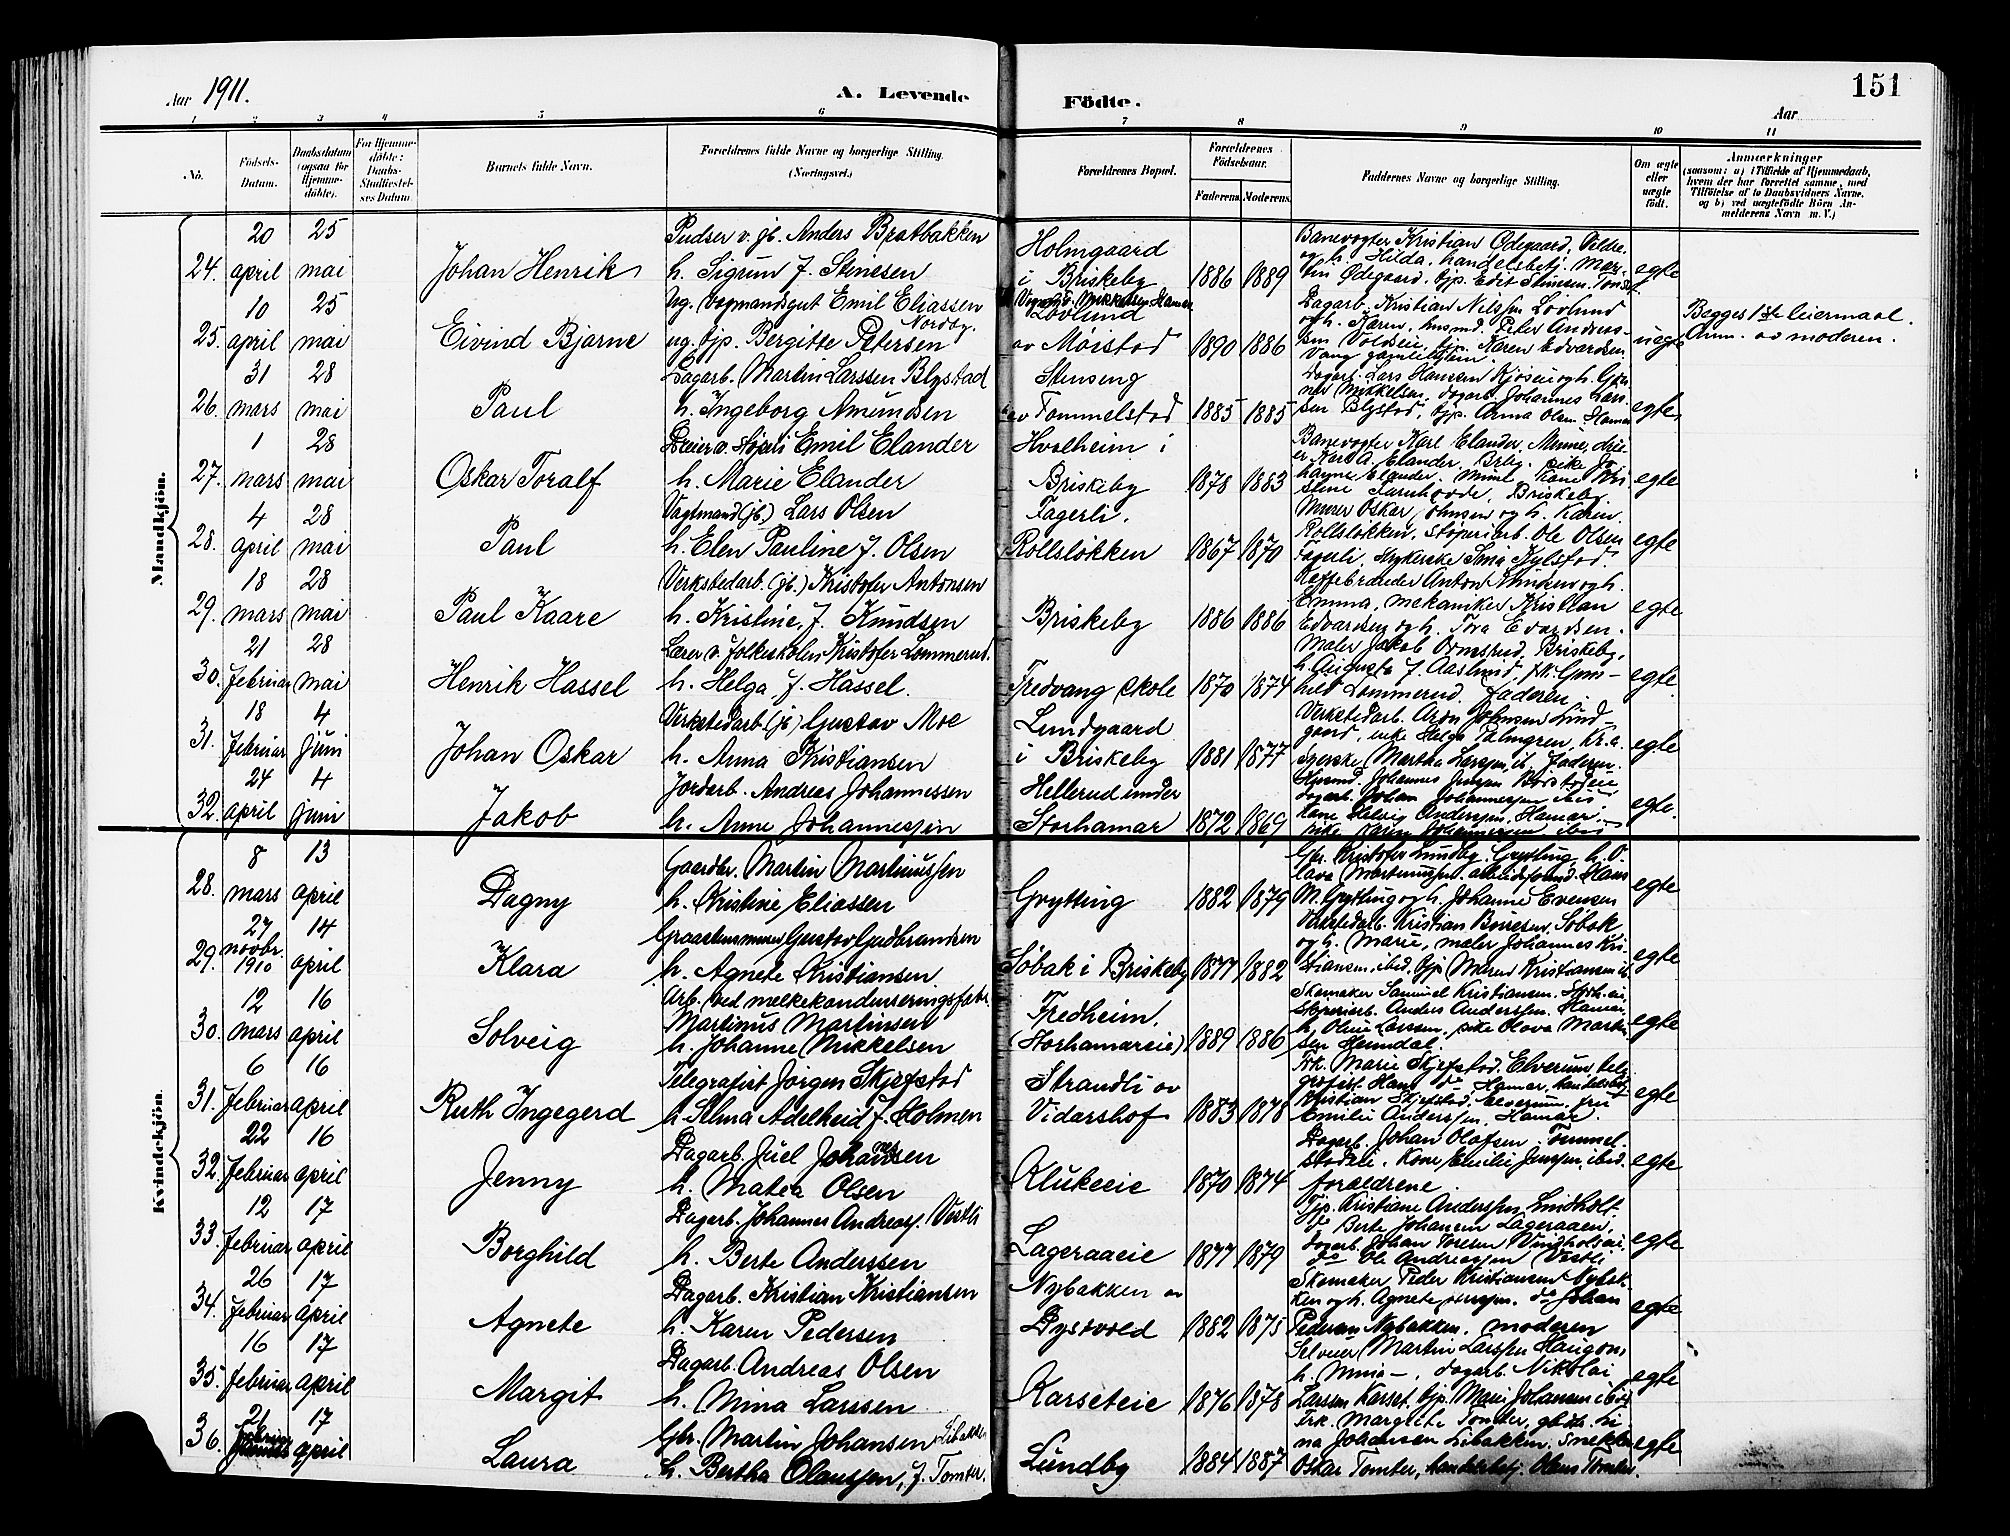 151
Aar 1911.
A. Levende Födte.
Aar
1 2 3 4 5 6 7 8 9 10 11
No.
Födsels-Datum.
Daabsdatum (ogsaa for Hjemmedöbte).
For Hjemmedöbte: Daabs-Stadfæstelses Datum
Barnets fulde Navn.
Forældrenes fulde Navne og borgerlige Stilling. (Næringsvei.)
Forældrenes Bopæl.
Forældrenes Födselsaar.
Faderens. Moderens.
Faddernes Navne og borgerlige Stilling.
Om ægte eller uægte födt.
Anmærkninger (saasom: a) i Tilfælde af Hjemmedaab, hvem der har forrettet samme, med Tilföielse af to Daabsvidners Navne, og b) ved uægtefödte Börn Anmelderens Navn m. V.)
Mandkjön.
24. 20 april 25 mai Johan Henrik
Pudser v. jb. Anders Bratbakken
h. Sigrun f. Stinesen
Holmgaard
i Briskeby 1886 1889
Banevogter Kristian Ödegaard, Veldre
og h. Hilda, handelsbetj. Mar-
tin Ödegaard, tjp. Edit Stinesen
egte
25. 10 april 25 mai Eivind Bjarne
Ug. vognmandsgut Emil Eliassen Nordby.
ug. tjp. Bergitte Petersen
Lövlund
av Möistad 1890 1886
Dagarb. Kristian Nilssen Lövlund
og h. Karen, husmd. Peter Andreas-
sen Voldseie, tjp. Karen Edvardsen
Vang gamlehjem
uegte
Begges 1ste leiermaal.
Anm. av moderen.
26. 31 mars 28 mai Paul
Dagarb. Martin Larssen Blystad
h. Ingeborg Amundsen
Stenseng
av Tommelstad 1885 1885
Dagarb. Lars Hansen Kjöseie og h. Gun-
ner Mikkelsen, dagarb. Johannes Lars-
sen Blystad, tjp. Anna Olsen Hamar
egte
27. 1 mars 28 mai Oskar Toralf
Dreier v. stöperi Emil Elander
h. Marie Elander
Hvalheim i
Briskeby 1878 1883
Banevogter Karl Elander, Menne, drei-
er Karl A. Elander, Brby. pike Jo-
hanne Elander
egte
28. 4 april 28 mai Paul
Vagtmand (jb.) Lars Olsen
h. Elen Pauline f. Olsen
Fagerli.
Rollslökken 1867 1870
Murer Oskar Johnsen og h. Karen
Rollslökken, Stöperiarb. Ole Olsen
Fagerli
egte
29. 18 mars 28 mai Paul Kaare
Verkstedarb. (jb.) Kristofer Antonsen
h. Kristine, f. Knudsen
Briskeby 1886 1886
Kaffebrænder Anton Knudsen og h.
Emma, mekaniker Kristian
Edvardsen og h. Tora Edvardsen.
egte
30. 21 februar 28 mai Henrik Hassel
Lærer v. folkeskolen Kristofer Lommerud.
h. Helga, f. Hassel.
Fredvang skole 1870 1874
Maler Jakob Ormsrud, Briskeby,
h. Augusta f. Aaslund, frk. Gun-
hild Lommerud. faderen.
egte
31. 18 februar 4 juni Johan Oskar
Verkstedarb. (jb) Gustav Moe
h. Anna Kristiansen
Lundgaard
i Briskeby 1881 1877
Verkstedarb. Aron Johnsen Lund-
gaard, enke Helga Palmgren, Kr.a.
syerske Martha Larssen, ib. faderen.
egte
32. 24 april 4 juni Jakob
Jordarb. Andreas Johannessen
h. Anne Johannessen
Hellerud under
Storhamar 1872 1869
Husmd. Johannes Jenssen
dagarb. Johan Johannessen ibid.
kone Helvig Anderssen, Hamar.
pike Karen Johannessen ibid
egte.
Kvindekjön.
28. 8 mars 13 april Dagny
Gaardbr. Martin Martinussen
h. Kristine Eliassen
Grytting 1882 1879
Gbr. Kristofer Lundby, Grytting, h. O-
lava Martinussen, arbeidsformd. Hans
M. Grytting og h. Johanne Evensen
egte
29. 27 novbr. 1910 14 april Klara
Graastensminer Gustav Gudbrandsen
h. Agnete Kristiansen
Söbak i Briskeby 1877 1882
Verkstedarb. Kristian Boresen, Söbak
og h. Marie, maler Johannes Kri-
stiansen, ibid. tjp. Maren Kristiansen ib
egte
30. 12 mars 16 april Solveig
Arb. ved melkekondenseringsfabr.
Martinus Martinsen
h. Johanne Mikkelsen
Fredheim.
(Storhamareie) 1889 1886
Skomaker Samuel Kristiansen, Storh.eie,
Stöperiarb. Anders Anderssen, Hamar,
h. Oline Larssen, pike Olava Martin-
sen Heimdal.
egte
31. 6 februar 16 april Ruth Ingegerd
Telegrafist Jörgen Skjefstad
h. Alma Adelheid f. Holmen
Strandli av
Vidarshof 1883 1878
Frk. Marie Skjefstad, Elverum, tele-
grafist Hans do Hamar, handelsbetj.
Kristian Skjefstad, Elverum, fru
Emilie Anderssen, Hamar.
egte
32. 22 februar 16 april Jenny
Dagarb. Juel Johansen
h. Matea Olsen
Klukeeie 1870 1874
Dagarb. Johan Olafsen Tommel-
stadeie. Kone Emilie Jenssen, ibid.
forældrene
egte
33. 12 februar 17 april Borghild
Dagarb. Johannes Andreass. Vestli
h. Berte Anderssen
Lageraaeie 1877 1879
Tjp. Kristiane Anderssen, Lindholt
do Berte Johansen Lageraaen,
dagarb. Johan Toresen Vindholseie
do Ole Andreassen Vestli
egte
34. 26 februar 17 april Agnete
Dagarb. Kristian Kristiansen
h. Karen Pedersen
Nybakken av
Dystvold 1882 1875
Skomaker Peder Kristiansen Nybak-
ken og h. Agnete, do Johan
Pedersen Nybakken. moderen
egte
35. 16 februar 17 april Margit
Dagarb. Andreas Olsen
h. Mina Larssen
Karseteie 1876 1878
Selveier Martin Larssen Haugom
h. Mina —, dagarb. Nikolai
Larssen Karset, tjp. Marie Johansen ibid
egte
36. 21 februar 17 april Laura
Gbr. Martin Johansen Libakken
h. Bertha Olaussen, f. Tomter.
Lundby 1884 1887
Frk. Margrete Tomter, gbdtr. Li-
na Johansen Libakken. Snekker
Oskar Tomter, handelsbetj. Olaus Tomter.
egte